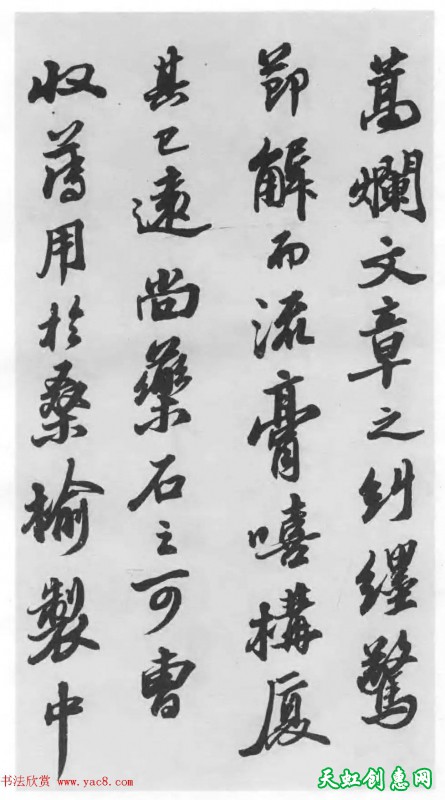 蒿爛文章之糾纏驚
節解而流膏嘻構厦
其已遠尚藥石之可曹
收薄用於桑榆製中
书法欣赏 www.yac8.com
天虹创惠网